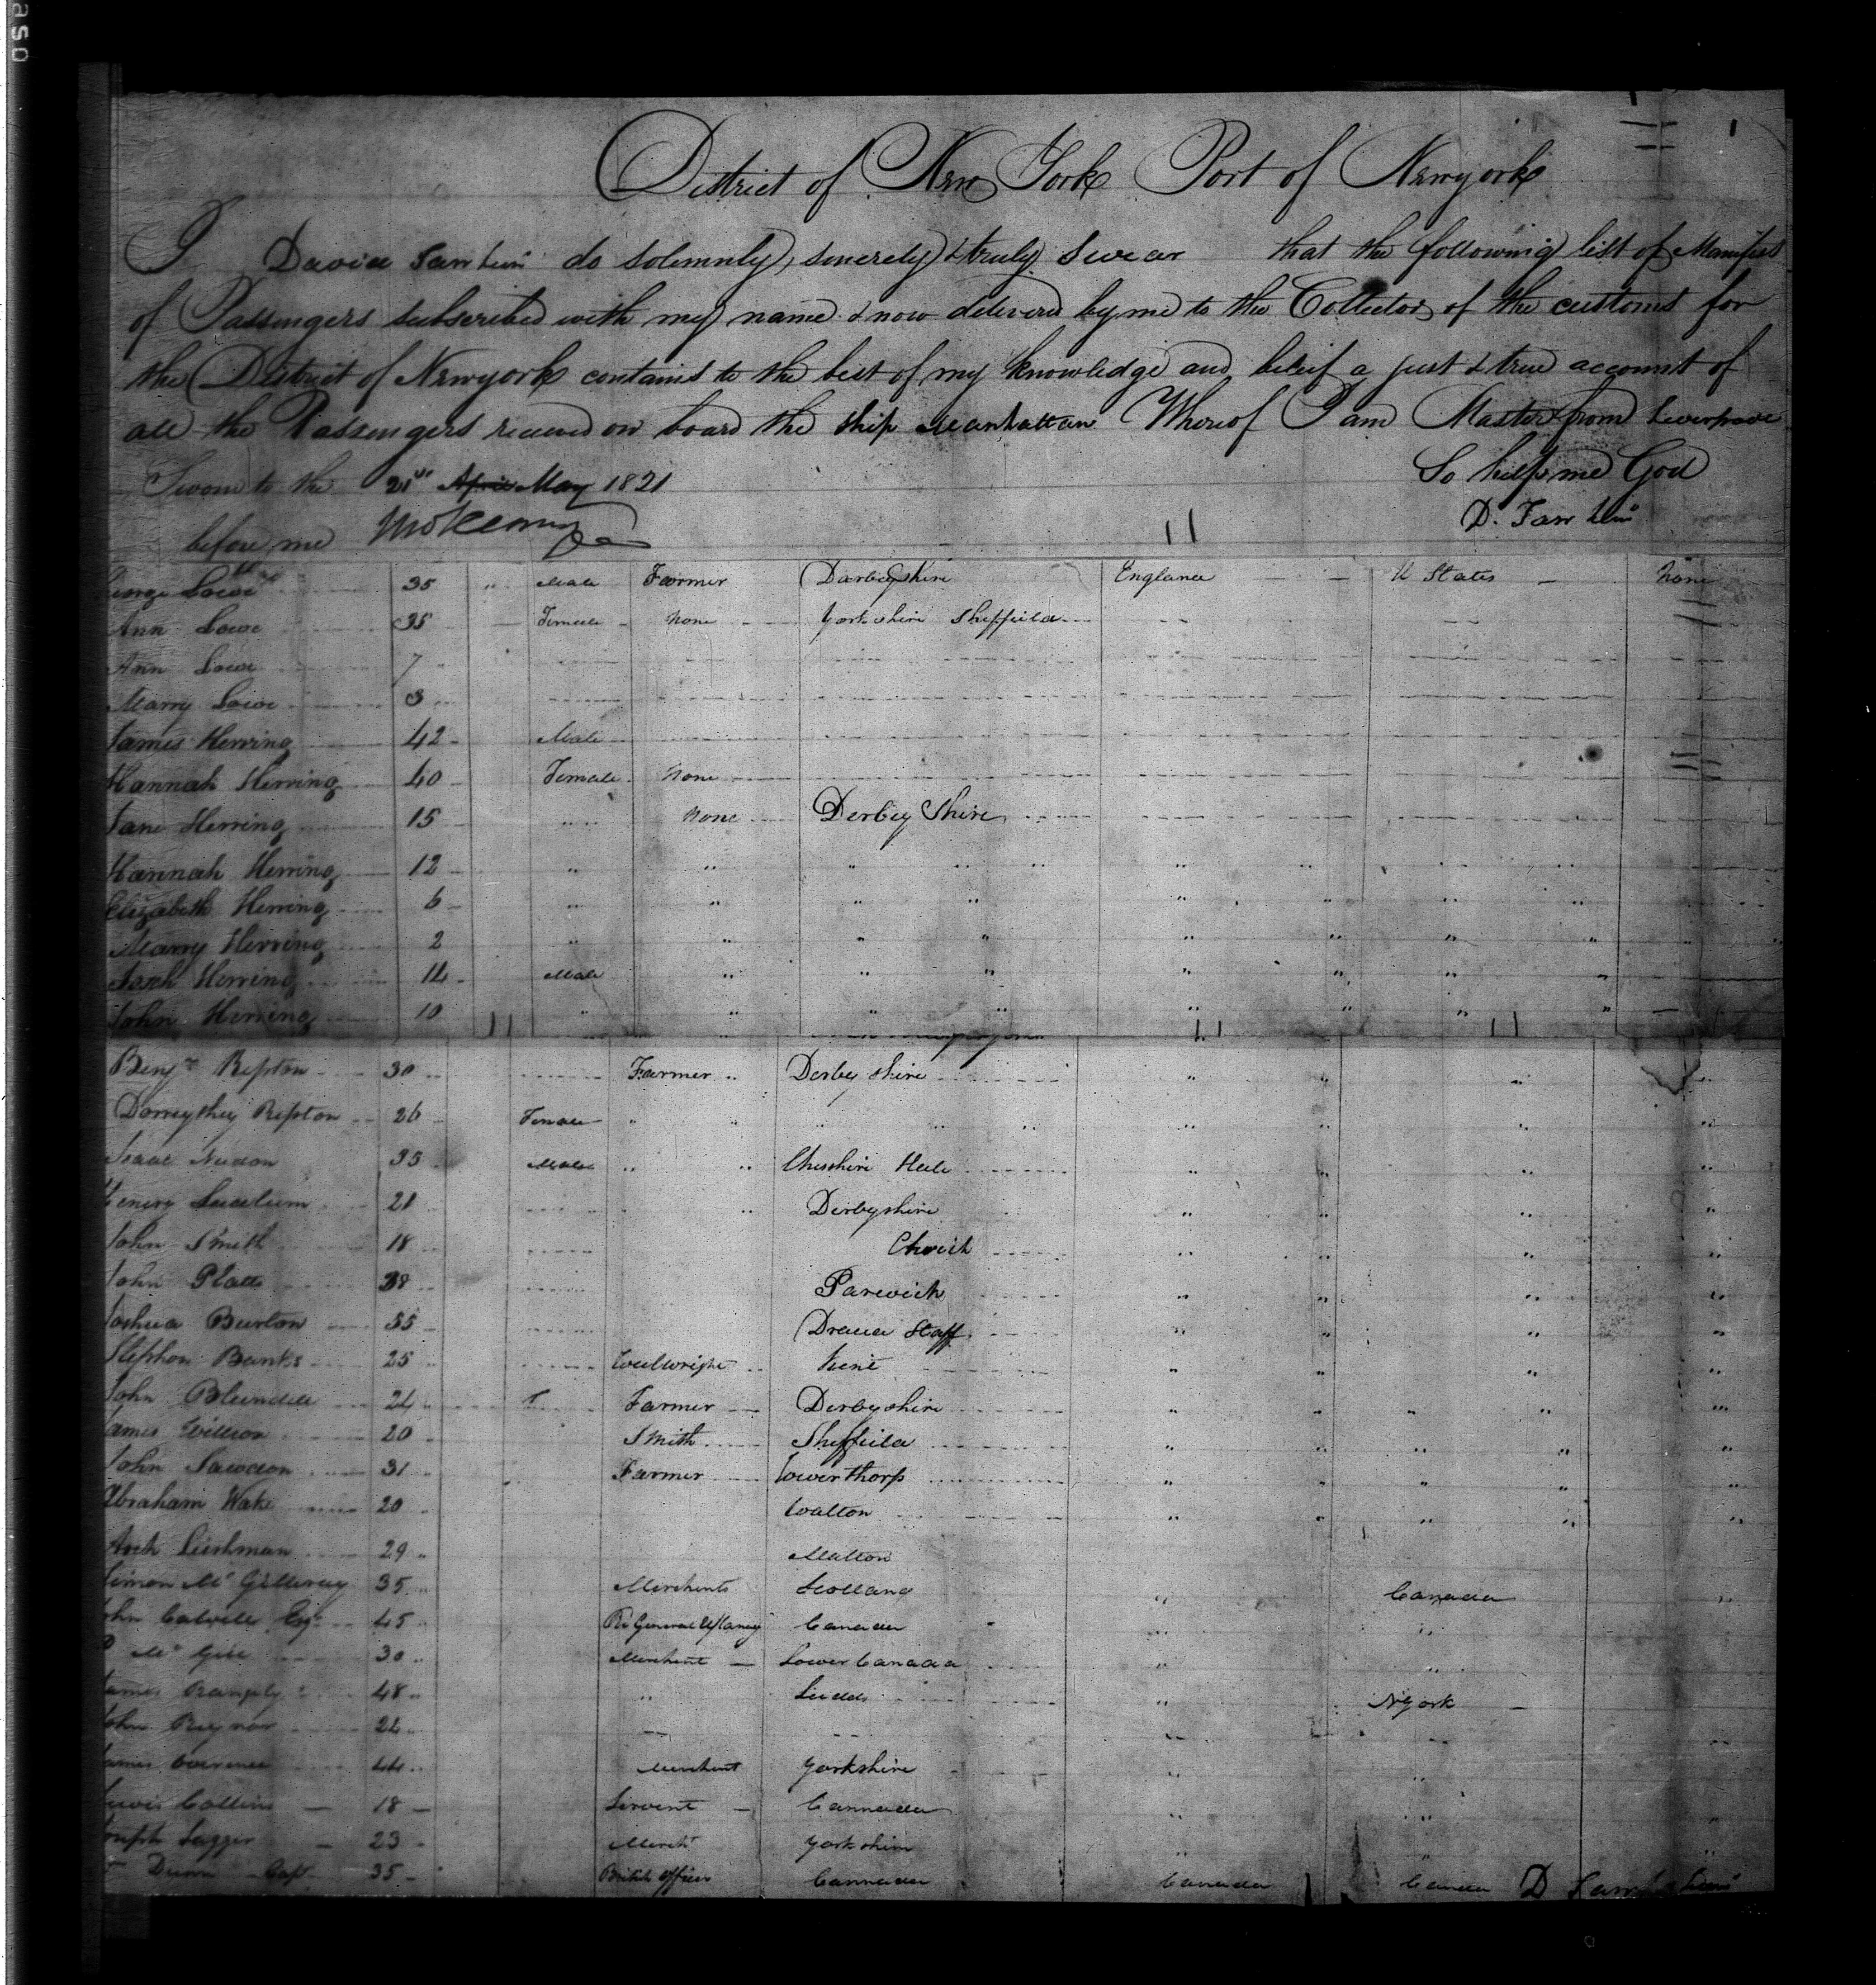 District of New York Port of Newyork
I David do solemnly, sincerely & truly Swear that the following list of Manifest
of Passengers subscribed with my name & now delivered by me to the Collector of the customs for
the District of Newyork contains to the best of my knowledge and beleif a just & true account of
all the Passengers received on board the ship Manhattan Whereof I am Master from Leverpool
So help me God
Sworn to the 21st April May 1821
before me
George Lowe 35 " Male Farmer Darbyshire England U States None
Ann Lowe 35 Female None Yorkshire Sheffield
Ann Lowe 7
Marry Lowe 3
James Herring 42 Male
Hannah Herring 40 Female None
Jane Herring 15 None Derbey Shire
Hannah Herring 12 " " " " " " " " "
Elizabeth Herring 6 " " " " " " " "
Marry Herring 2 " " " " " " " "
Male " " " " " " "
John Herring 10 " " " " " " " "
Benjn Repton 30 Farmer " Derbey shire " " " "
Repton 26 Female " " " " " " " " "
Isaac Nixon 35 Male " " Chesshire " " " "
Henry 21 " Derbyshire " " " "
John Smith 18 " " " "
John Platts 38 Parwich " " " "
Joshua Burton 35 Staff. " " " "
Stephon Banks 25 Weelwright Kent " " " "
John Blundell 24 Farmer Derbyshire " " " " "
James Willson 20 Smith Sheffield " " " " "
John Lawson 31 Farmer Lowerthorp " " " " "
Abraham Wake 20 Walton " " " " "
Arch Lieshman 29 Malton
Simon Mc Gillivray 35 Merchants Scolland " Canada "
John Calvell Esqr 45 Canada " "
Mc Gill 30 Merchent Lower Canada " "
James 48 " Leeds " NYork
John Raynor 24
James 44 Merchant Yorkshire " "
Lewis Collins 18 Servent Cannada " " "
Joseph 23 Mercht Yorkshire " "
Dunn Capt 35 British Officer Cannada Canada Canada